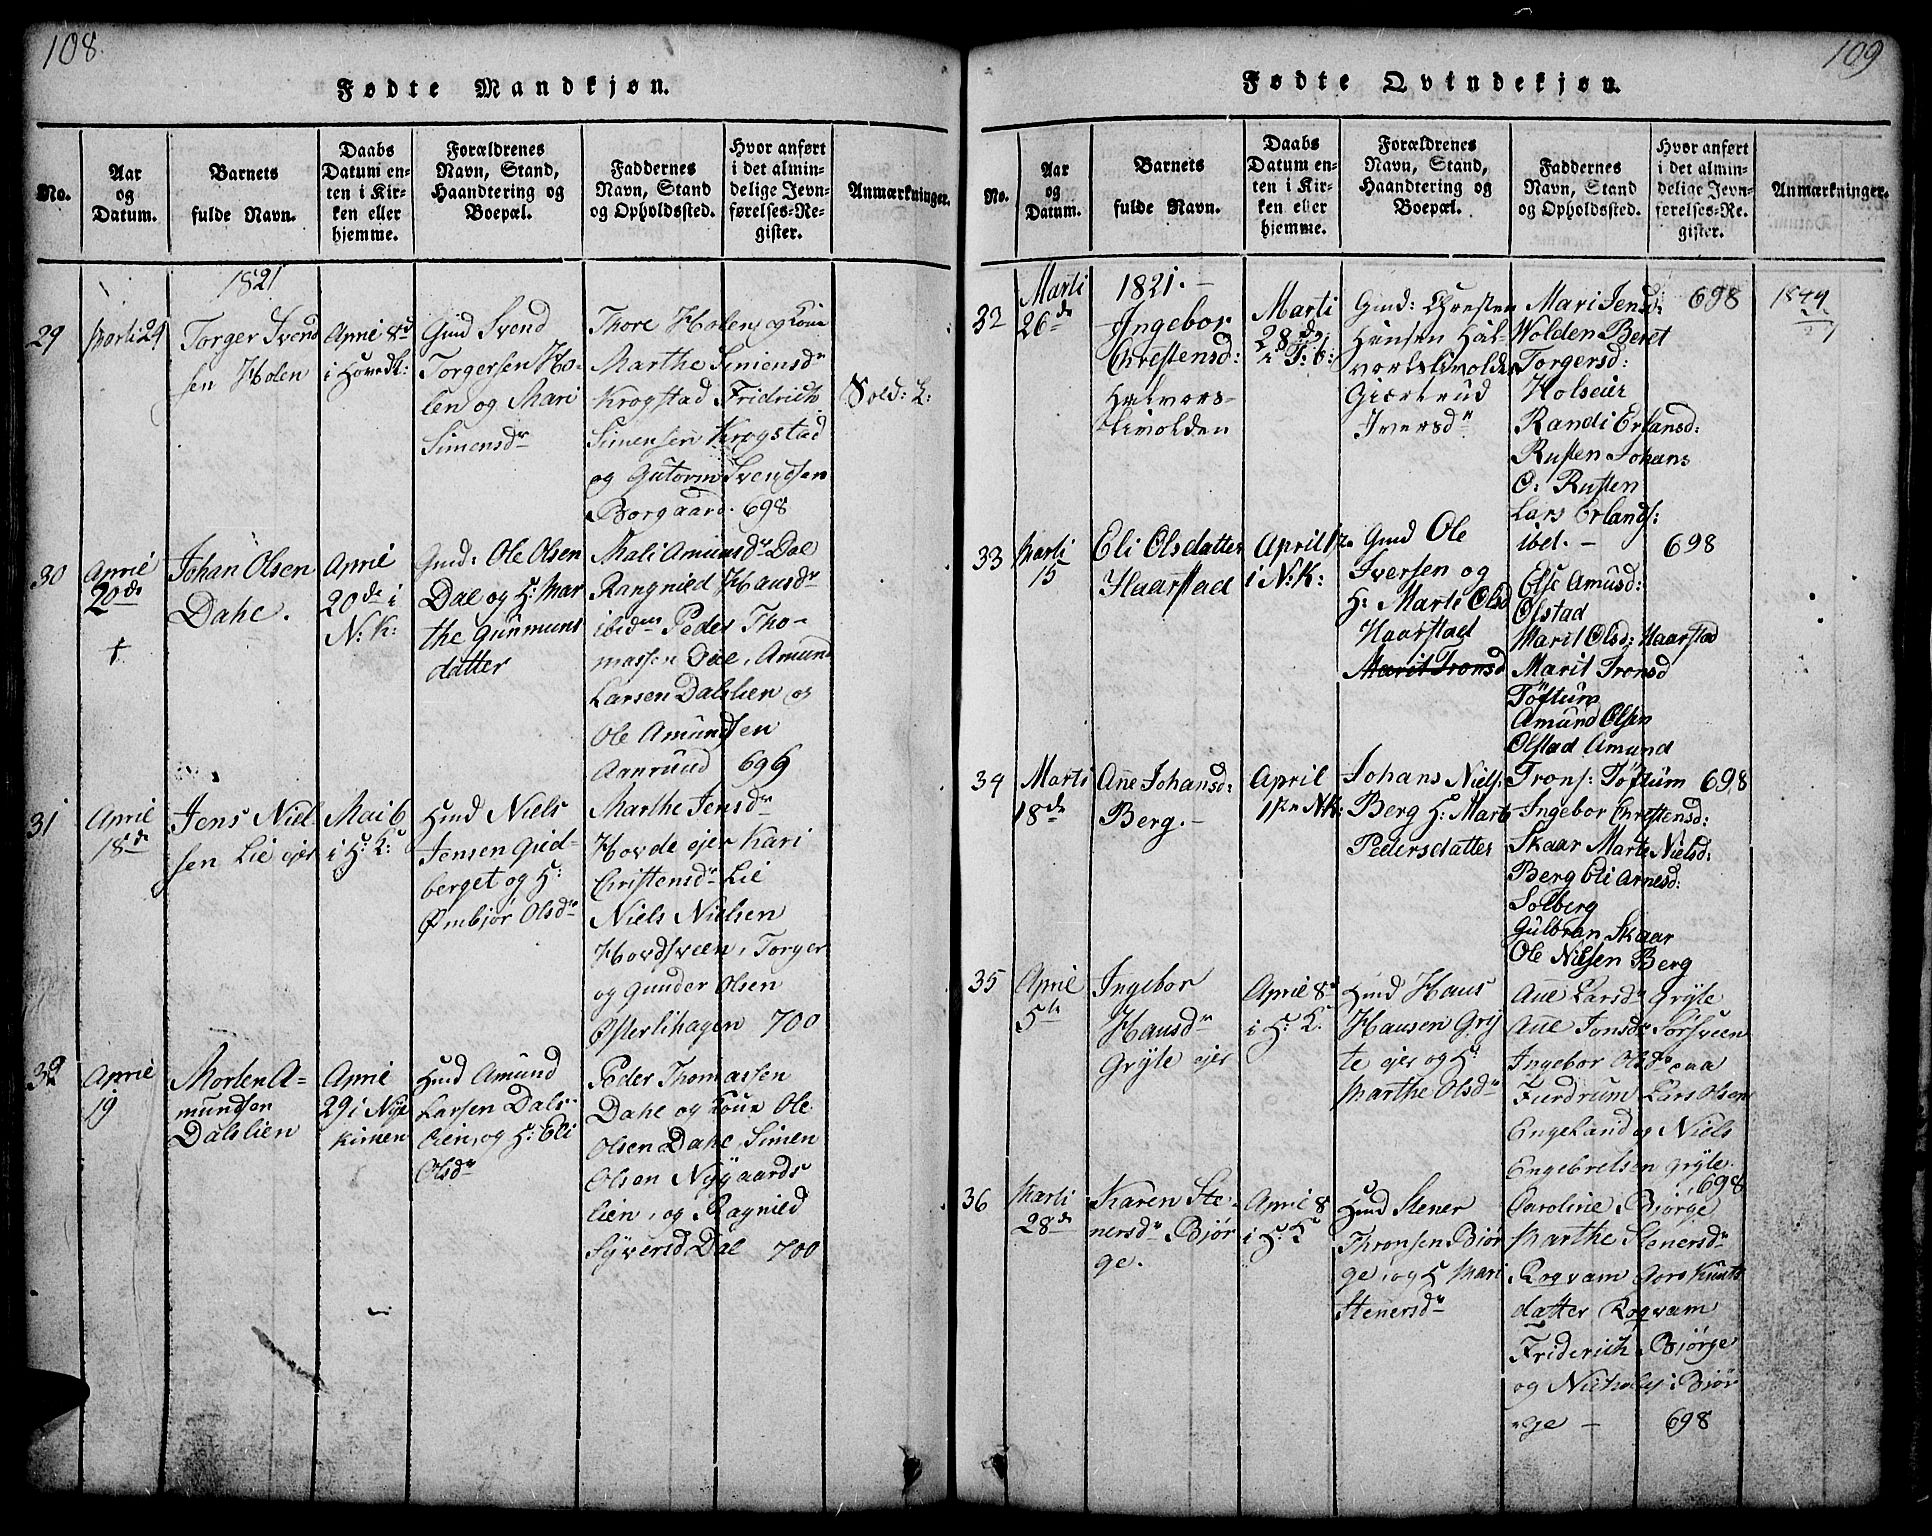 108.
Fødte Mandkjøn.
No.
Aar
og
Datum.
Barnets
fulde Navn.
Daabs
Datum en-
ten i Kir-
ken eller
hjemme.
Forældrenes
Navn, Stand,
Haandtering og
Boepæl.
Faddernes
Navn, Stand
og Opholdssted.
Hvor anført
i det almin-
delige Jevn-
førelses-Re-
gister.
Anmærkninger.
1821
29
Marti 24
Torger Svend
sen Holen
Aprie 8d
i Hovedk:
Gmd Svend
Torgersen Ho-
len og Mari
Simensdr
Thore Holen og Kone
Marthe Simensdr
Krogstad Fridrich
Simensen Krogstad
og Gutorm Svendsen
Borgaard. 698
Sold: L:
30
Aprie
20de
†
Johan Olsen
Dahe.
Aprie
20de i
N: K:
Gmd: Ole Olsen
Dal og H: Mar
the Gunmuns
datter
Mali Amunsdr Dal
Rangnied Hansdr
ibidm Peder Tho-
massen Dae, Amund
Larsen Dalslien og
Ole Amundsen
Aanrund 699
31
April
18de
Jens Niel-
sen Lie ejer
Mai 6
i H: K:
Hmd Niels
Jensen Gud-
berget og H:
Ømbjør Olsdr
Marthe Jensdr
Hovde ejer Kari
Christensdr Lie
Niels Nielsen
Hovdsveen, Torger
og Gunder Olsen
Østerlihagen 700
32
Aprie
19
Morten A-
mundsen
Dalslien
Aprie
29 i Nye
kirken
Hmd Amund
Larsen Dals-
lien, og H: Eli
Olsdr
Peder Thomassen
Dahe og Kone Ole
Olsen Dahe, Simen
Olsen Nygaards
lien, og Ragnied
Syversd Dal 700
109
Fødte Qvindekjøn.
No.
Aar
og
Datum.
Barnets
fulde Navn.
Daabs
Datum en-
ten i Kir-
ken eller
hjemme.
Forældrenes
Navn, Stand,
Haandtering og
Boepæl.
Faddernes
Navn, Stand
og Opholdssted.
Hvor anført
i det almin-
delige Jevn-
førelses-Re-
gister.
Anmærkninger.
1821. -
32
Marti
26de
Ingebor
Chrestensd:
Halvors-
livolden
Marti
28de
i F: b:
Gmd: Chresten
Hansen Hal-
vorslivolden
Giertrud
Iversdr
Mari Jensd:
Wolden Beret
Torgersd:
Holseier
Randi Erlansd:
Rusten Johans
O: Rusten
Lars Erlands:
ibet. -
698
1844
33
Marti
15
Eli Olsdatter
Haarstad
April 1te
i N: K:
Gmd Ole
Iversen og
H: Marte Olsd
Haarstad
Marit Tronsd
698
Else Amusd:
Olstad
Marit Olsd: Haarstad
Marit Tronsd
Töftum
Amund Olsen
Olstad Amund
Trons: Töftum 698
34
Marti
18de
Ane Johansd:
Berg. -
April
1ste NK:
Johans Niels:
Berg H: Marte
Pedersdatter
Ingebor Chrestensd:
Skaar Marte Nielsd:
Berg Eli Arnesd:
Solberg
Gulbran Skaar
Ole Nielsen Berg
35
Aprie
5te
Ingebor
Hansdr
Gryte ejer
Aprie 8d
i H: K:
Hmd Hans
Hansen Gry
te ejer og H:
Marthe Olsdr
Ane Larsdr Gryte
Ane Jonsdr Sørsveen
Ingebor Olsdr paa
Furdrum Lars Olsen
Engeland og Niels
Engebretsen Gryte
698
36
Marti
28de
Karen Ste-
nersdr Bjør
ge.
Aprie 8
i H: K
Hmd Stener
Thronsen Bjør
ge, og H Mari
Stenersdr
Caroline Bjørge
Marthe Stenersdr
Rogvam Aase Knuts
datter Rogvam
Friderich Bjørge
og Nicholej Bjør
ge - 698